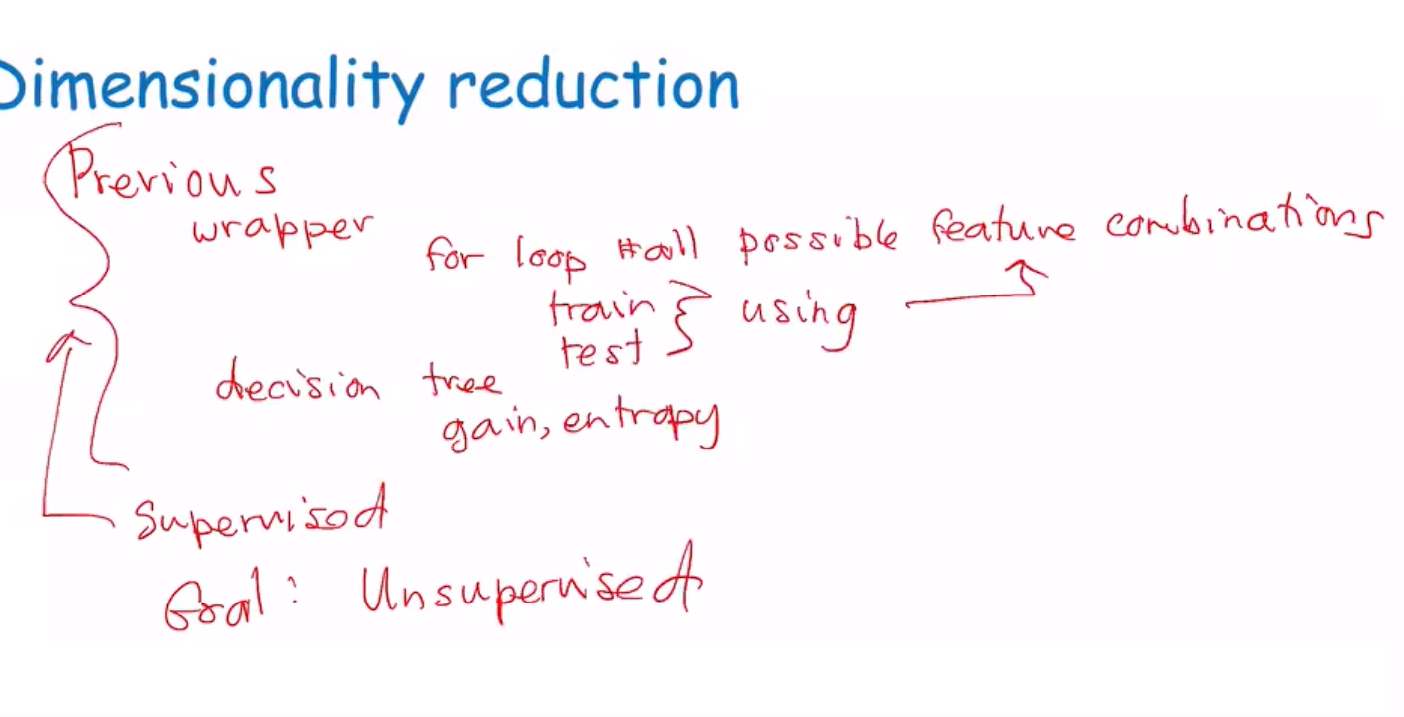 Dimensionality reduction
Previous
wrapper
for loop #all possible feature combinations
train } using
test
decision tree
gain, entropy
Supervised
Goal: Unsupervised